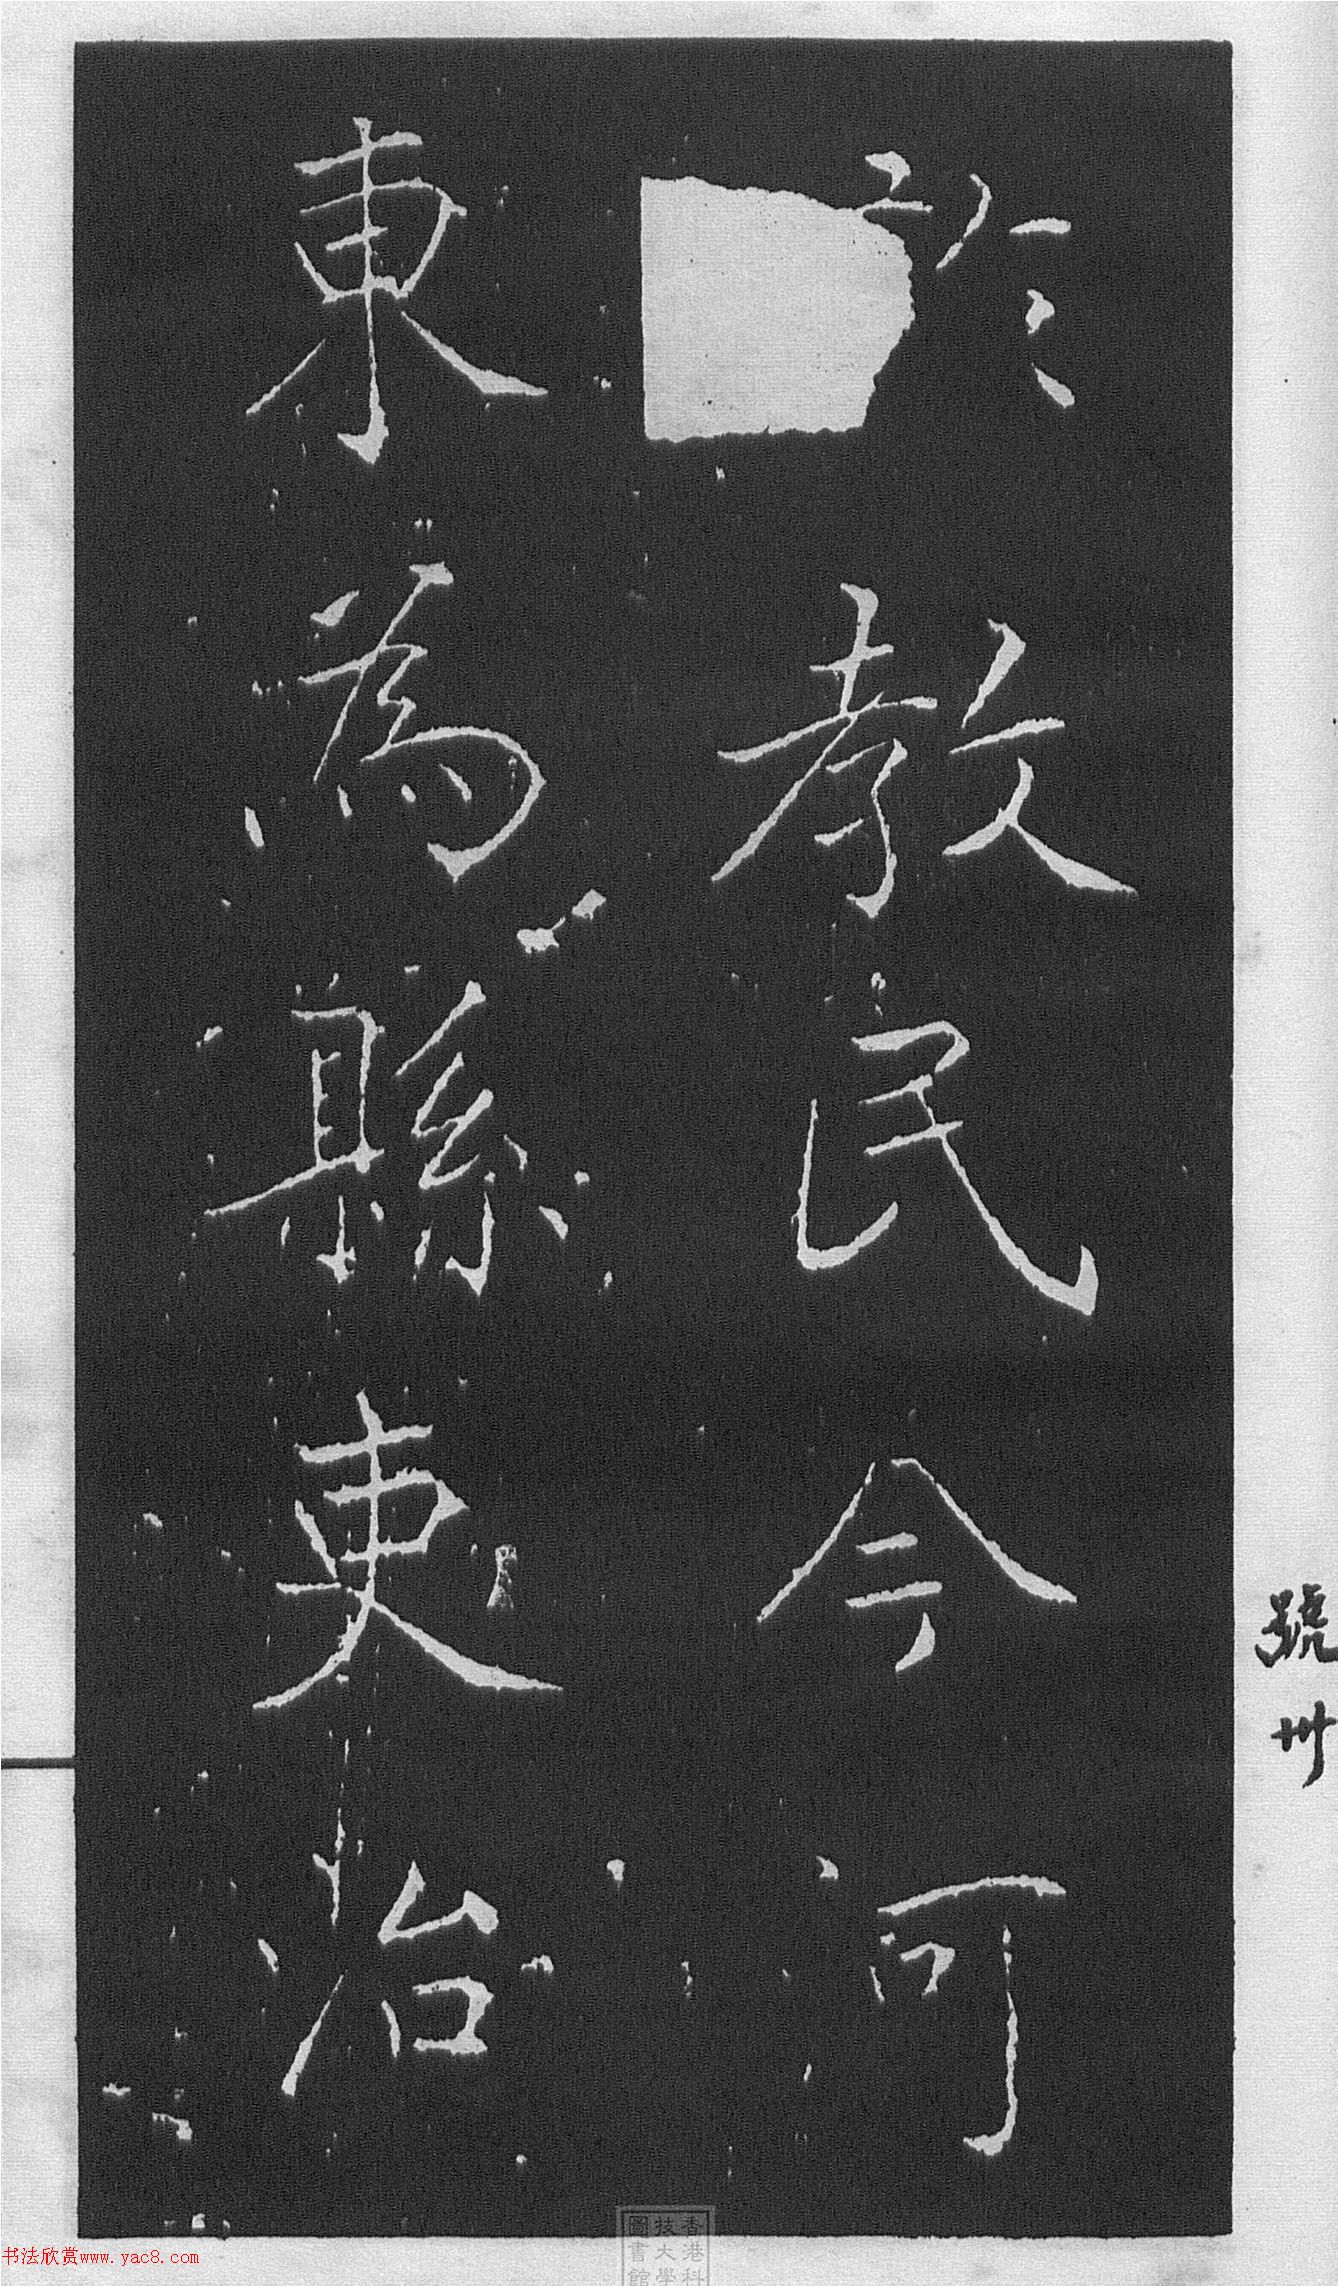 號卅
於教民今河
東為縣吏治
香港科
技大學
圖書館
书法欣赏www.yac8.com